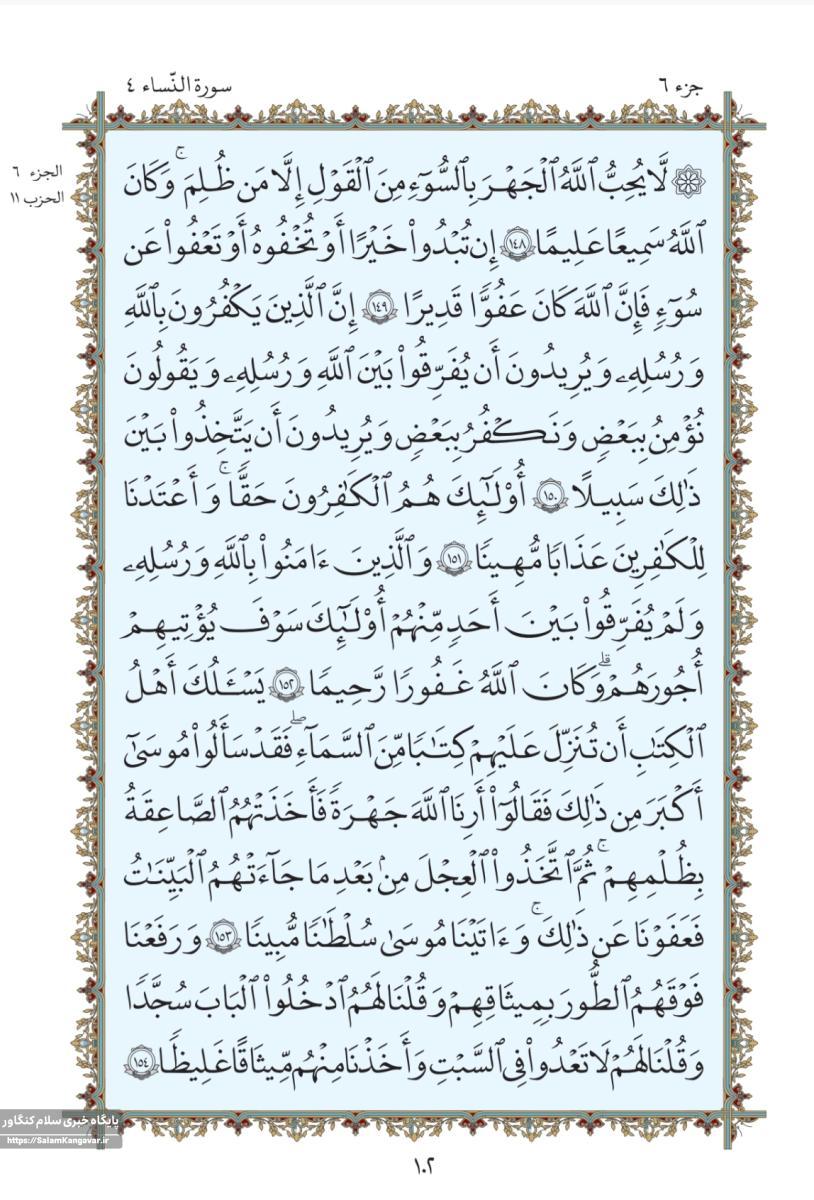 جزء ٦
سورة النّساء ٤
الجزء ٦
الحزب ١١
۞ لَّا يُحِبُّ ٱللَّهُ ٱلْجَهْرَ بِٱلسُّوٓءِ مِنَ ٱلْقَوْلِ إِلَّا مَن ظُلِمَ ۚ وَكَانَ
ٱللَّهُ سَمِيعًا عَلِيمًا ١٤٨ إِن تُبْدُوا۟ خَيْرًا أَوْ تُخْفُوهُ أَوْ تَعْفُوا۟ عَن
سُوٓءٍ فَإِنَّ ٱللَّهَ كَانَ عَفُوًّا قَدِيرًا ١٤٩ إِنَّ ٱلَّذِينَ يَكْفُرُونَ بِٱللَّهِ
وَرُسُلِهِۦ وَيُرِيدُونَ أَن يُفَرِّقُوا۟ بَيْنَ ٱللَّهِ وَرُسُلِهِۦ وَيَقُولُونَ
نُؤْمِنُ بِبَعْضٍ وَنَكْفُرُ بِبَعْضٍ وَيُرِيدُونَ أَن يَتَّخِذُوا۟ بَيْنَ
ذَٰلِكَ سَبِيلًا ١٥٠ أُو۟لَـٰٓئِكَ هُمُ ٱلْكَـٰفِرُونَ حَقًّا ۚ وَأَعْتَدْنَا
لِلْكَـٰفِرِينَ عَذَابًا مُّهِينًا ١٥١ وَٱلَّذِينَ ءَامَنُوا۟ بِٱللَّهِ وَرُسُلِهِۦ
وَلَمْ يُفَرِّقُوا۟ بَيْنَ أَحَدٍ مِّنْهُمْ أُو۟لَـٰٓئِكَ سَوْفَ يُؤْتِيهِمْ
أُجُورَهُمْ ۗ وَكَانَ ٱللَّهُ غَفُورًا رَّحِيمًا ١٥٢ يَسْـَٔلُكَ أَهْلُ
ٱلْكِتَـٰبِ أَن تُنَزِّلَ عَلَيْهِمْ كِتَـٰبًا مِّنَ ٱلسَّمَآءِ ۖ فَقَدْ سَأَلُوا۟ مُوسَىٰٓ
أَكْبَرَ مِن ذَٰلِكَ فَقَالُوٓا۟ أَرِنَا ٱللَّهَ جَهْرَةً فَأَخَذَتْهُمُ ٱلصَّـٰعِقَةُ
بِظُلْمِهِمْ ۚ ثُمَّ ٱتَّخَذُوا۟ ٱلْعِجْلَ مِنۢ بَعْدِ مَا جَآءَتْهُمُ ٱلْبَيِّنَـٰتُ
فَعَفَوْنَا عَن ذَٰلِكَ ۚ وَءَاتَيْنَا مُوسَىٰ سُلْطَـٰنًا مُّبِينًا ١٥٣ وَرَفَعْنَا
فَوْقَهُمُ ٱلطُّورَ بِمِيثَـٰقِهِمْ وَقُلْنَا لَهُمُ ٱدْخُلُوا۟ ٱلْبَابَ سُجَّدًا
وَقُلْنَا لَهُمْ لَا تَعْدُوا۟ فِى ٱلسَّبْتِ وَأَخَذْنَا مِنْهُم مِّيثَـٰقًا غَلِيظًا ١٥٤
پایگاه خبری سلام کنگاور
https://SalamKangavar.ir
١٠٢